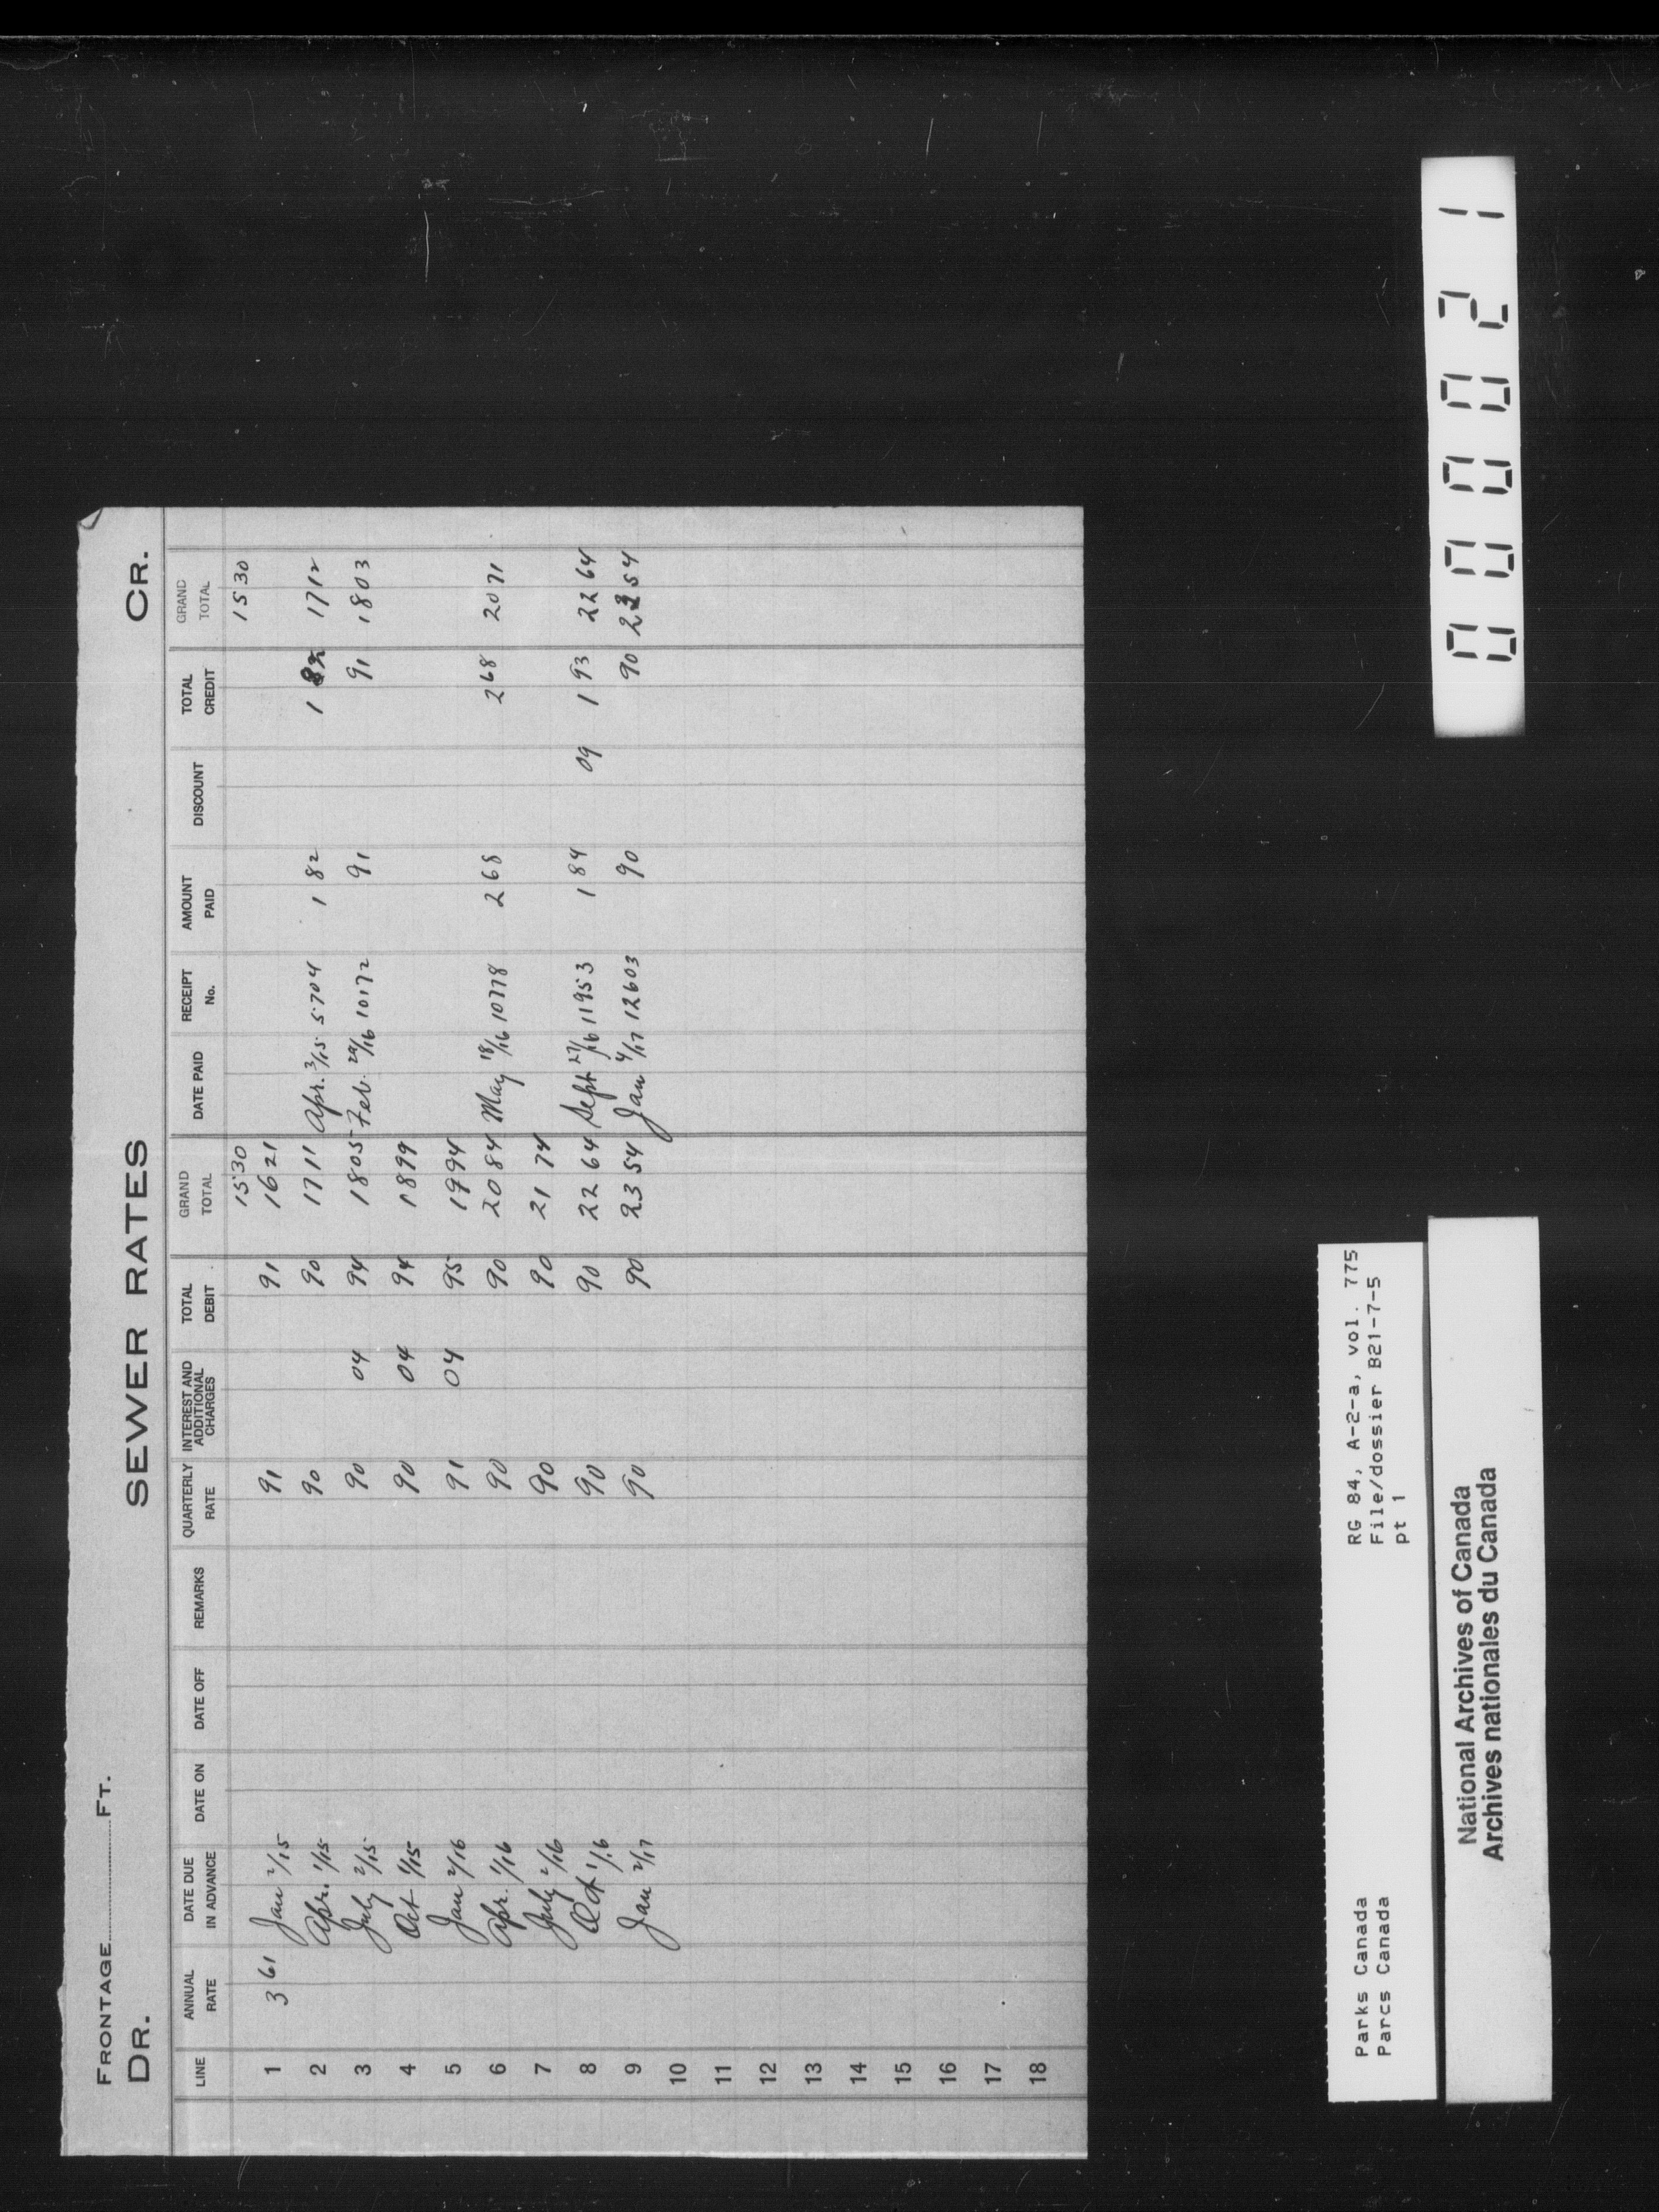 FRONTAGE..............FT.
DR. SEWER RATES CR.
LINE ANNUAL RATE DATE DUE IN ADVANCE DATE ON DATE OFF REMARKS QUARTERLY RATE INTEREST AND ADDITIONAL CHARGES TOTAL DEBIT GRAND TOTAL DATE PAID RECEIPT No. AMOUNT PAID DISCOUNT TOTAL CREDIT GRAND TOTAL
15 30 15 30
1 3 61 Jan 2/15 91 91 16 21
2 Apr. 1/15 90 90 17 11 Apr. 3/15 5704 1 82 1 82 17 12
3 July 2/15 90 04 94 18 05 Feb. 29/16 10172 91 91 18 03
4 Oct 1/15 90 04 94 18 99
5 Jan 2/16 91 04 95 19 94
6 Apr. 1/16 90 90 20 84 May 18/16 10778 2 68 2 68 20 71
7 July 2/16 90 90 21 74
8 Oct 1/16 90 90 22 64 Sept 27/16 11953 1 84 09 1 93 22 64
9 Jan 2/17 90 90 23 54 Jan 4/17 12603 90 90 23 54
10
11
12
13
14
15
16
17
18
Parks Canada RG 84, A-2-a, vol. 775
Parcs Canada File/dossier B21-7-5
pt 1
National Archives of Canada
Archives nationales du Canada
000021